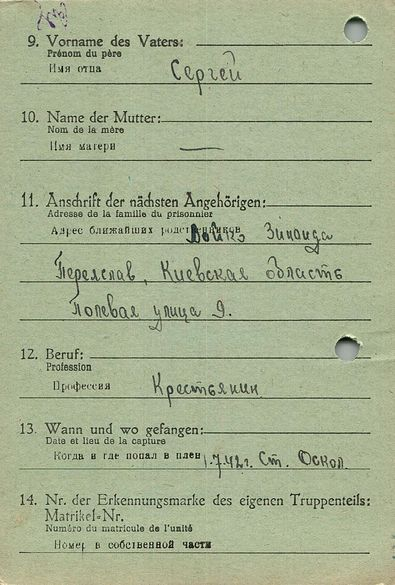 9. Vorname des Vaters:
Prénom du père
Имя отца Сергей
10. Name der Mutter:
Nom de la mère
Имя матери —
11. Anschrift der nächsten Angehörigen:
Adresse de la famille du prisonnier
Адрес ближайших родственников Бойко Зинаида
Переяслав, Киевская область
Полевая улица 9.
12. Beruf:
Profession
Профессия Крестьянин
13. Wann und wo gefangen:
Date et lieu de la capture
Когда в где попал в плен 1.7.42г. Ст. Оскол
14. Nr. der Erkennungsmarke des eigenen Truppenteils:
Matrikel=Nr.
Numéro du matricule de l'unité
Номер в собственной части